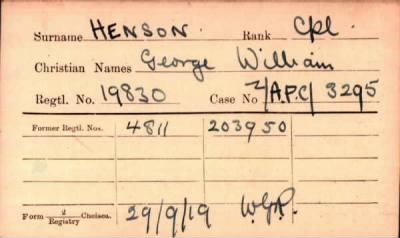 Surname HENSON. Rank Cpl.
Christian Names George William
Regtl. No. 19830 Case No 2/A.P.C/ 3295
Former Regtl. Nos. 4811 203950
Form 2/Registry Chelsea. 29/9/19 W.G.P.